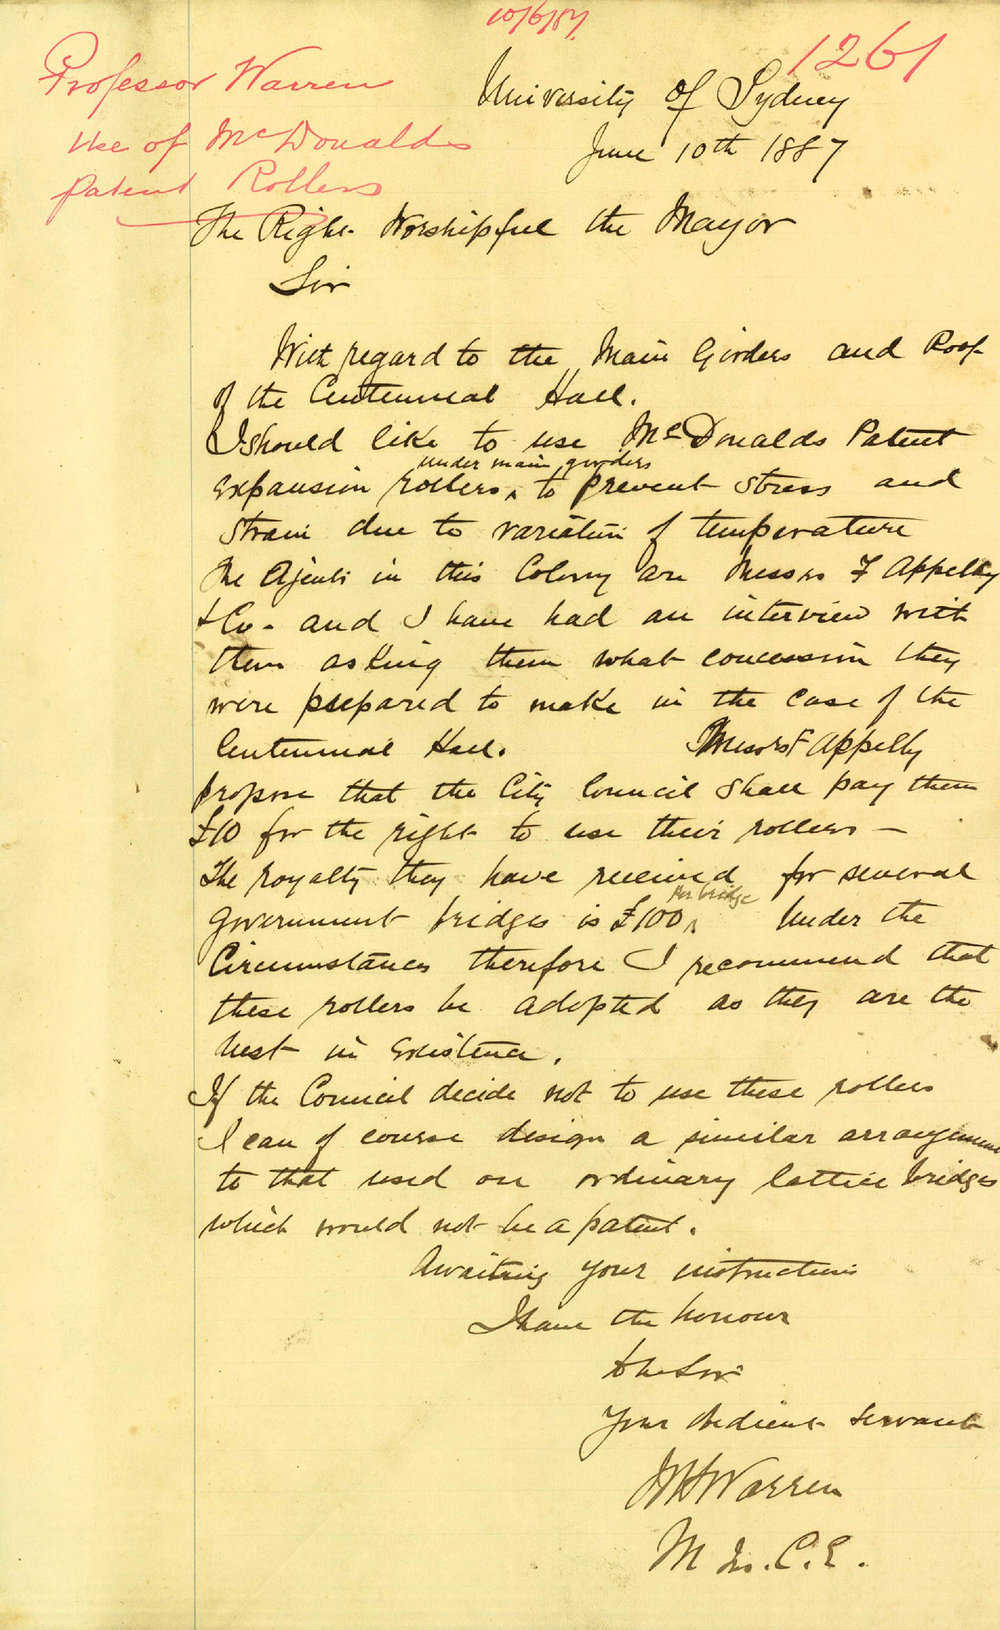 10/6/87
1261
Professor Warren
Use of McDonalds
patent Rollers
University of Sydney
June 10th 1887
The Right Worshipful the Mayor
Sir
With regard to the Main Girders and Roof
of the Centennial Hall.
I should like to use McDonalds Patent
expansion rollers ^ to prevent stress and
under main girders
strain due to variation of temperature
The Agents in this Colony are Messrs F Appelby
& Co - and I have had an interview with
them asking them what concession they
were prepared to make in the case of the
Centennial Hall. Messrs F Appelby
propose that the City Council shall pay them
£10 for the right to use their rollers -
The royalty they have received for several
Government bridges is £100 ^ Under the
per bridge
Circumstances therefore I recommend that
these rollers be adopted as they are the
best in existence.
If the Council decide not to use these rollers
I can of course design a similar arrangement
to that used on ordinary lattice bridges
which would not be a patent.
Awaiting your instructions
I have the honour
to be Sir
Your obedient servant
WH Warren
M In. C. E.